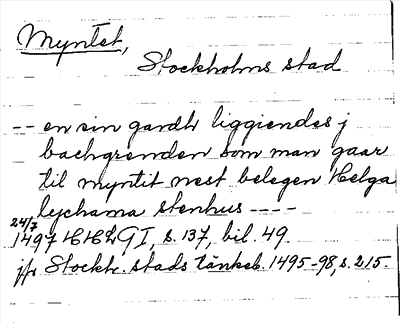 Myntet,
Stockholms stad
-- en sin gardh liggiendes j
bachgrenden som man gaar
til myntit nest belegen Helga
lychama stenhus ----
24/7
1497 HHLGI, s. 137, bil. 49.
jfr Stockh. stads tänkeb. 1495-98, s. 215.